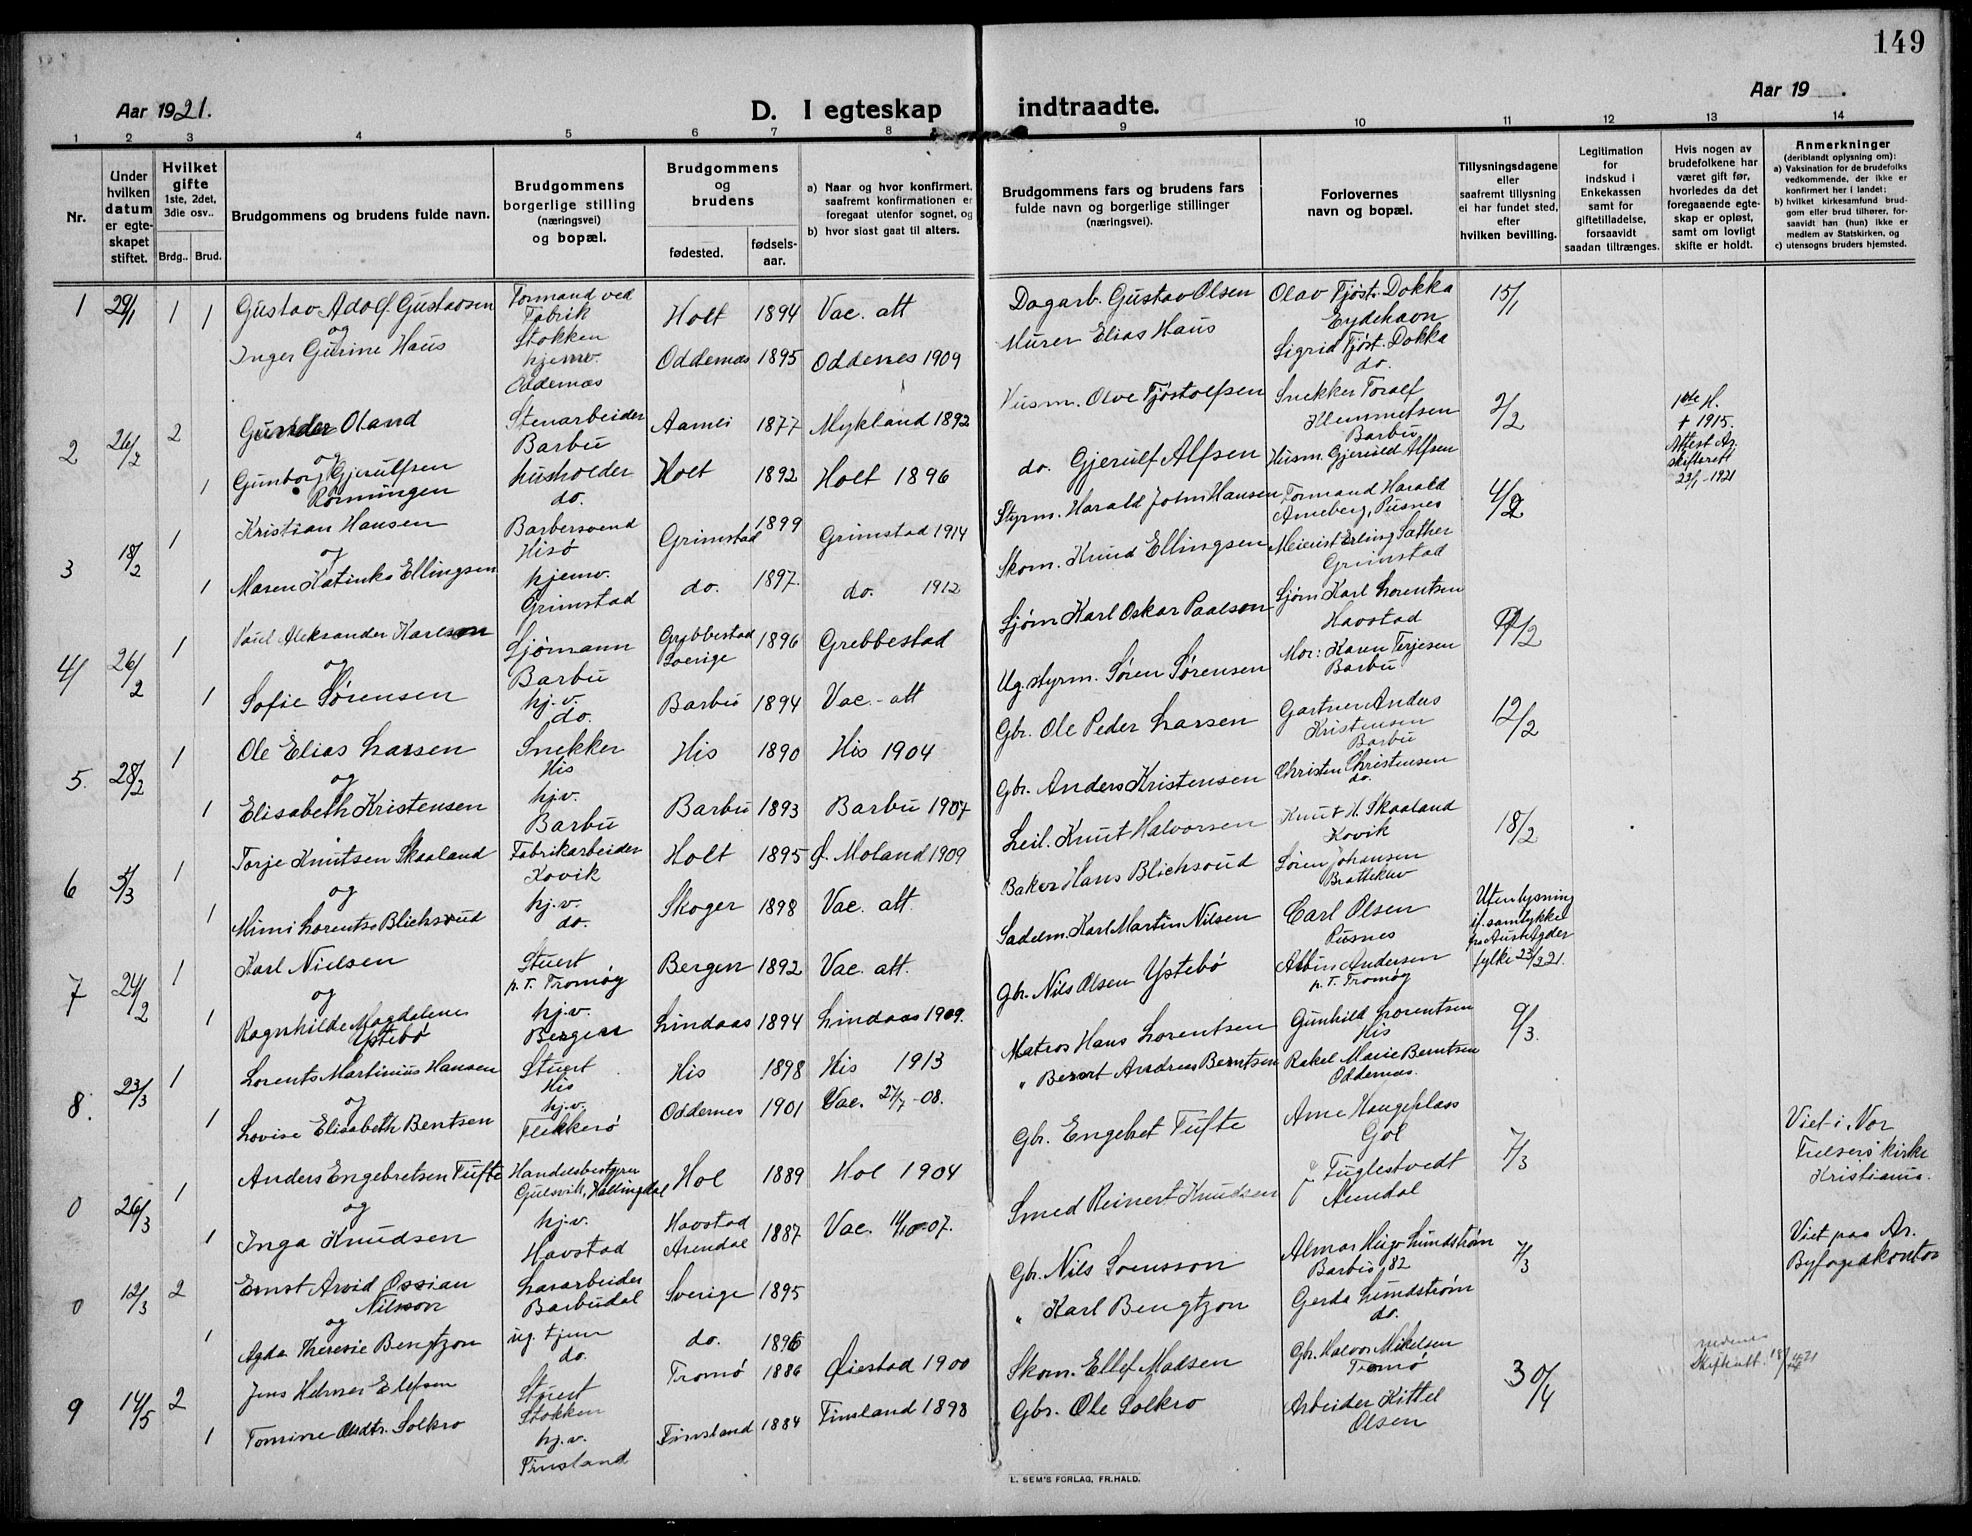 149
Aar 1921.
D. I egteskap indtraadte.
Aar 19 .
1 2 3 4 5 6 7 8 9 10 11 12 13 14
Nr.
Under hvilken datum er egteskapet stiftet.
Hvilket gifte 1ste, 2det, 3die osv..
Brdg.. Brud.
Brudgommens og brudens fulde navn.
Brudgommens borgerlige stilling (næringsvei) og bopæl.
Brudgommens og brudens
fødested. fødselsaar.
a) Naar og hvor konfirmert, saafremt konfirmationen er foregaat utenfor sognet, og
b) hvor sidst gaat til alters.
Brudgommens fars og brudens fars fulde navn og borgerlige stillinger (næringsvei).
Forlovernes navn og bopæl.
Tillysningsdagene eller saafremt tillysning ei har fundet sted, efter hvilken bevilling.
Legitimation for indskud i Enkekassen samt for giftetilladelse, forsaavidt saadan tiltrænges.
Hvis nogen av brudefolkene har været gift før, hvorledes da det foregaaende egteskap er opløst, samt om lovligt skifte er holdt.
Anmerkninger (deriblandt oplysning om):
a) Vaksination for de brudefolks vedkommende, der ikke er konfirmert her i landet;
b) hvilket kirkesamfund brudgom eller brud tilhører, forsaavidt han (hun) ikke er medlem av Statskirken, og
c) utensogns bruders hjemsted.
1 29/1 1 Gustav Adolf Gustavsen Formand ved Fabrik Stokken Holt 1894 Vac. att Dagarb. Gustav Olsen Olav Tjøst. Dokka Eydehavn 15/1
og
1 Inger Gurine Haus hjemv. Oddernæs Oddernæs 1895 Oddernes 1909 Murer Elias Haus Sigrid Tjøst. Dokka do.
2 26/2 2 Gunder Oland Stenarbeider Barbu Aamli 1877 Mykland 1892 Husm. Olve Tjøstolfsen Snekker Toralf Klemmetsen Barbu 2/2 1ste H. † 1915. Attest Ar. skifteret 22/1-1921
og
1 Gunborg Gjerulfsen Rønningen husholder do. Holt 1892 Holt 1896 do. Gjerulf Alfsen Husm. Gjeruld Alfsen
3 18/2 1 Kristian Hansen Barbersvend Hisø Grimstad 1899 Grimstad 1914 Styrm. Harald John Hansen Formand Harald Arneberg, Pusnes 4/2
og
1 Maren Katinka Ellingsen hjemv. Grimstad do. 1897. do. 1912 Skom. Knud Ellingsen Meierist Erling Sæther Grimstad
4 26/2 1 Paul Aleksander Karlson Sjømann Barbu Grebbestad Sverige 1896 Grebbestad Sjøm Karl Oskar Paalson Sjøm Karl Lorentsen Havstad 9/2
og
1 Sofie Sørensen hj.v. do. Barbu 1894 Vac.-att Ug. styrm. Søren Sørensen Mor: Karen Terjesen Barbu
5. 28/2 1 Ole Elias Larsen Snekker His His 1890 His 1904 Gbr. Ole Peder Larsen Gartner Anders Kristensen Barbu 12/2
og
1 Elisabeth Kristensen hj.v. Barbu Barbu 1893 Barbu 1907 Gbr. Anders Kristensen Christen Christensen do.
6 5/3 1 Torje Knutsen Skaaland Fabrikarbeider Kovik Holt 1895 Ø. Moland 1909 Leil. Knut Halvorsen Knut H. Skaaland Kovik 18/2
og
1 Mimi Lorentse Blichsrud hj.v. do. Skoger 1898 Vac. att Baker Hans Blichsrud Søren Johansen Brattekleiv
7 24/2 1 Karl Nielsen Stuert p.T. Tromøy Bergen 1892 Vac. att. Sadelm. Karl Martin Nilsen Carl Olsen Pusnes Uten lysning if. samtykke fra Aust-Agder fylke 23/2 21.
og
1 Ragnhilde Magdalene Ystebø hj.v. Bergen Lindaas 1894 Lindaas 1909. Gbr. Nils Olsen Ystebø Albin Andersen p.T. Tromøy
8. 23/3 1 Lorents Martinius Hansen Stuert His His 1898 His 1913 Matros Hans Lorentsen Gunhild Lorentsen His 9/3.
og
1 Lovise Elisabeth Berntsen hj.v. Flekkerø Oddernes 1901 Vac. 27/7-08. " Berent Andreas Berntsen Rakel Marie Berntsen Oddernæs.
0 26/3 1 Anders Engebretsen Tufte Handelsbestyrer Gulsvik, Hallingdal Hol 1889 Hol 1904 Gbr. Engebret Tufte Arne Haugeplass Gol 7/3 Viet i Vor Frelsers kirke Kristiania.
og
1 Inga Knudsen hj.v. Havstad Havstad Arendal 1887 Vac. 11/10-07. Smed Reinert Knudsen Fuglestvedt Arendal
0 12/3 2 Ernst Arvid Ossian Nilsson Lasarbeider Barbudal Sverige 1895 Gbr. Nils Svensson Almar Hugo Lundstrøm Barbu 82 7/3 Viet paa Ar. Byfogedkontor
og
1 Agda Theresie Bengtzon ug. tjener do. do. 1896 " Karl Bengtzon Gerda Lundstrøm do.
9 14/5 2 Jens Helmer Elefsen Stuert Stokken Tromø 1886 Øiestad 1900 Skom. Ellef Madsen Gbr. Halvor Mikelsen Tromø 30/4 Nedenes Skifteatt. 18/4 21
1 Tomine Olsdtr. Solkro hj.v. Finsland Finsland 1884 Finsland 1898 Gbr. Ole Solkro Arbeider Kittel Olsen
E. SEM'S FORLAG, FR.HALD.